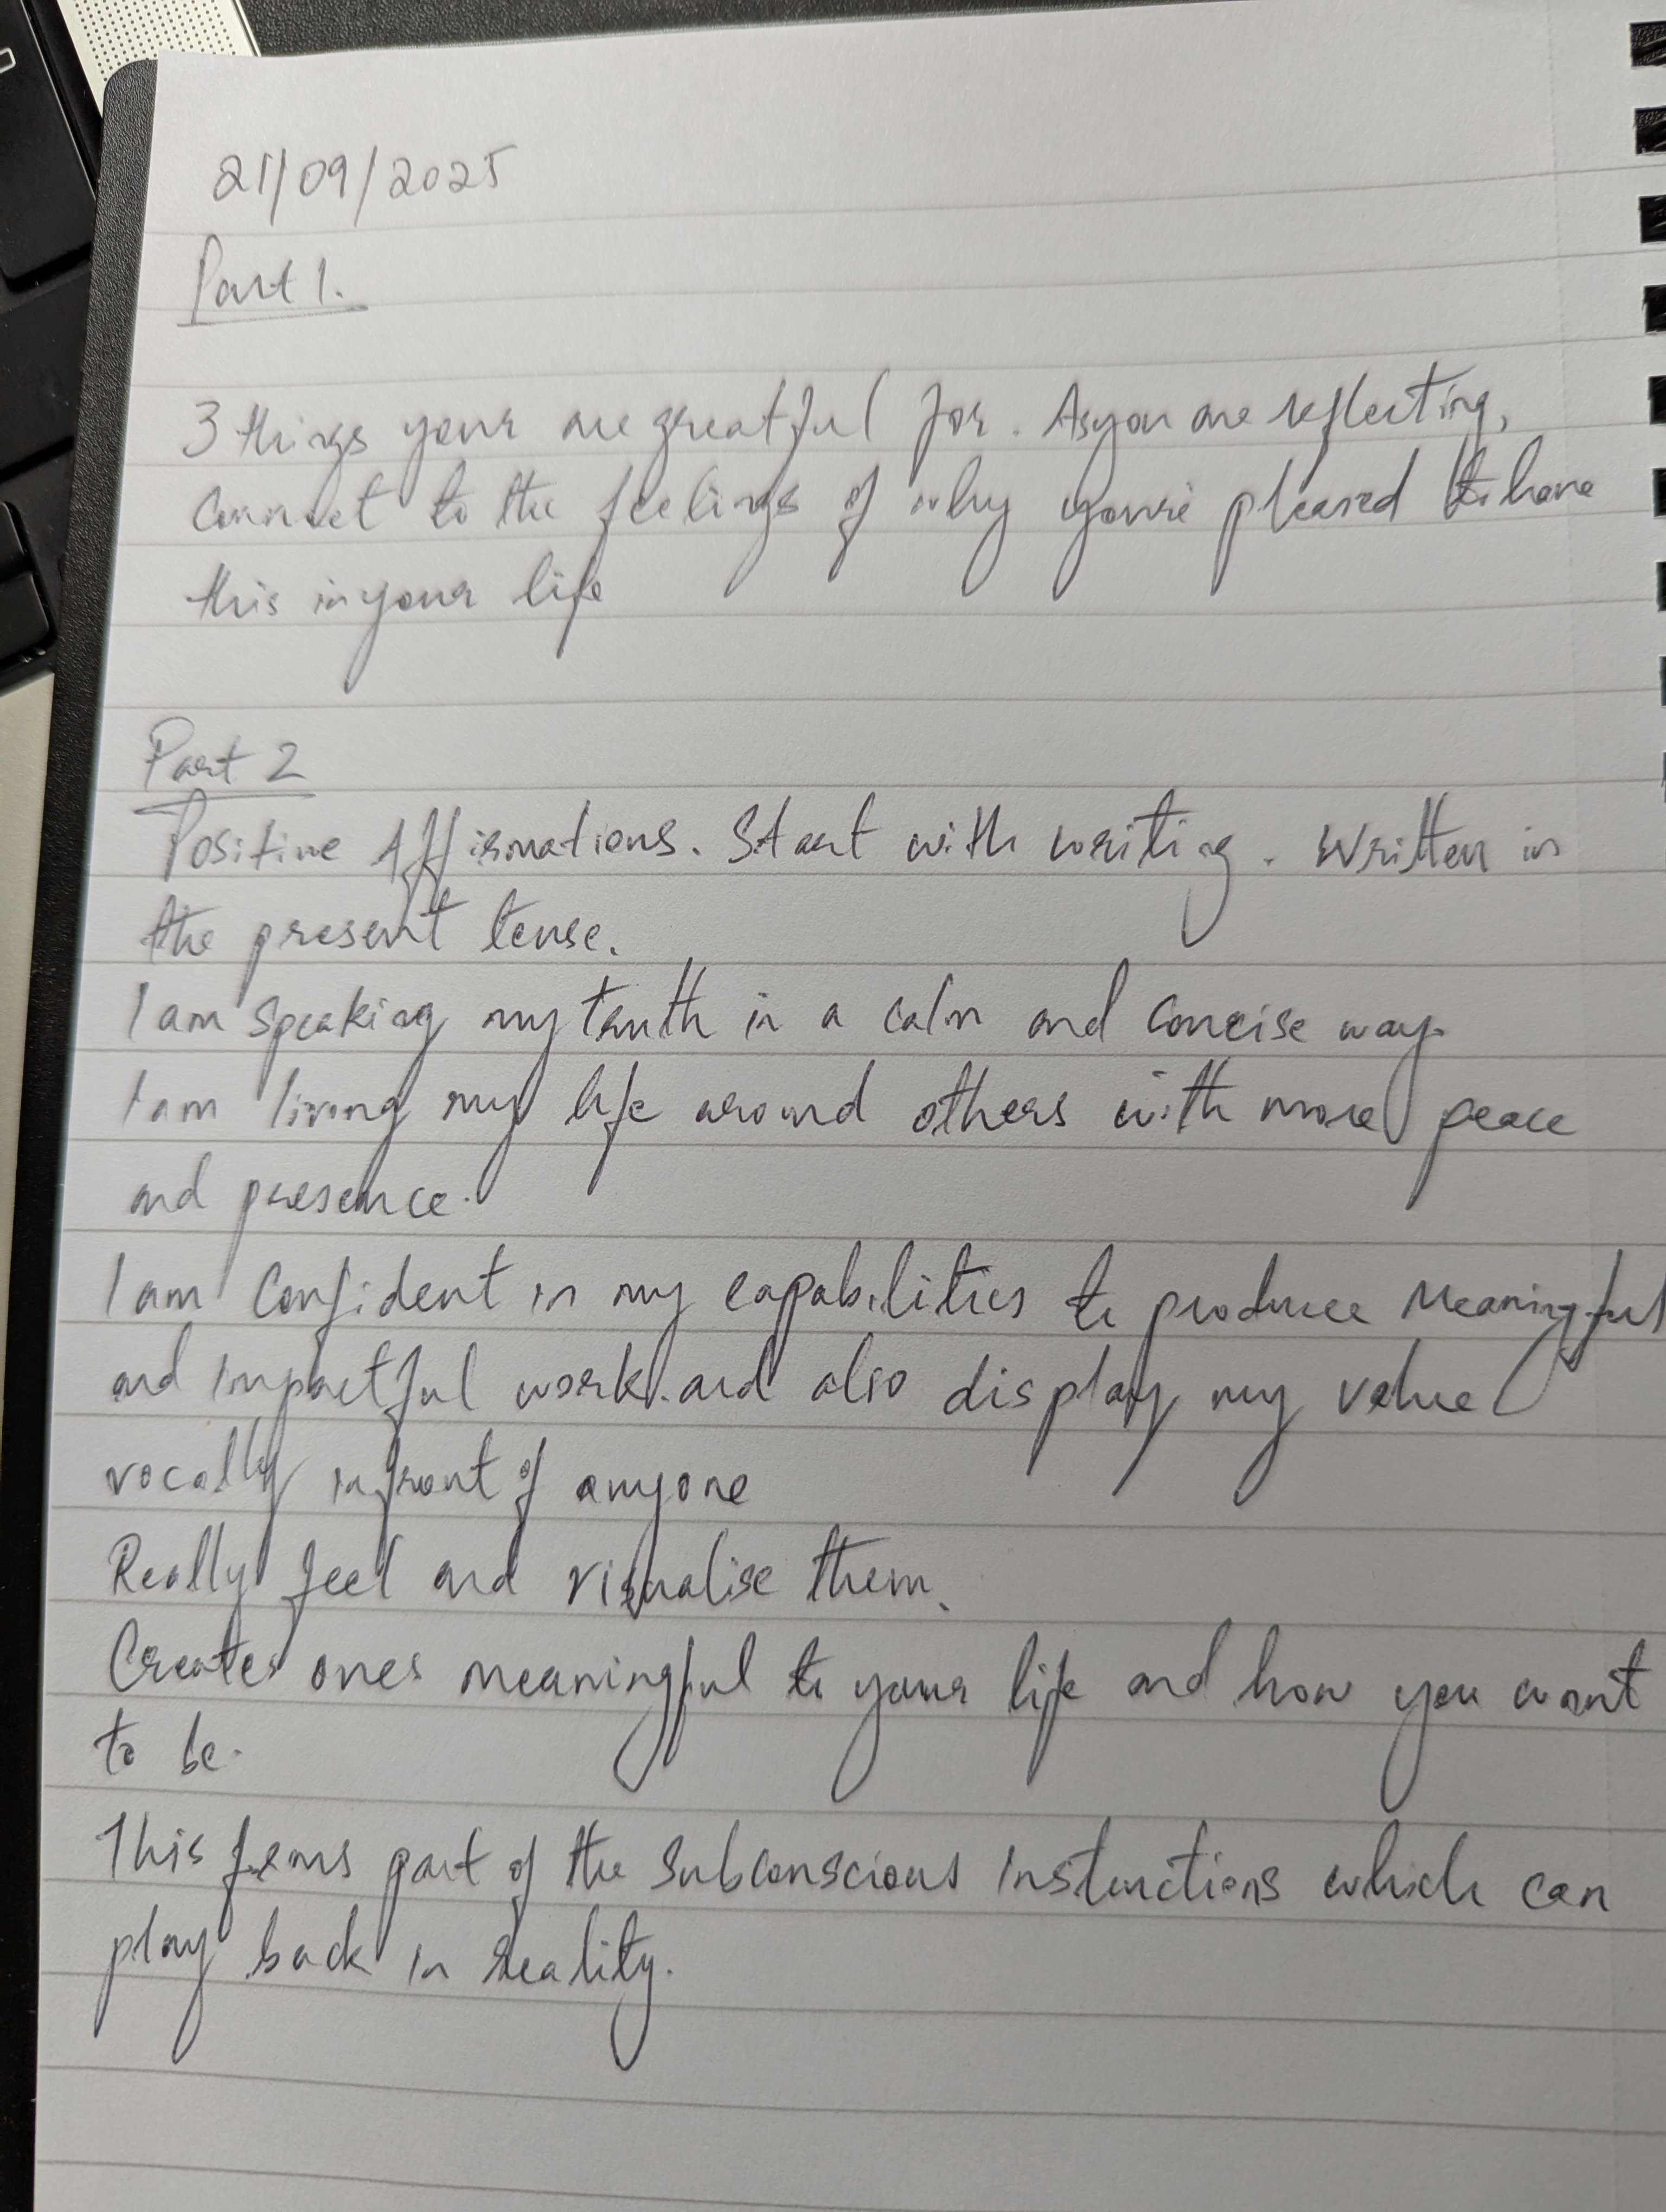 21/09/2025
Part 1.
3 things your are greatful for. As you are reflecting,
connect to the feelings of why you're pleased to have
this in your life
Part 2
Positive Affirmations. Start with writing. Written in
the present tense.
I am speaking my truth in a calm and concise way.
I am living my life around others with more peace
and presence.
I am confident in my capabilities to produce Meaningful
and impactful work. and also display my value
vocally infront of anyone
Really feel and visualise them.
Creates ones meaningful to your life and how you want
to be.
This forms part of the subconscious instructions which can
play back in reality.